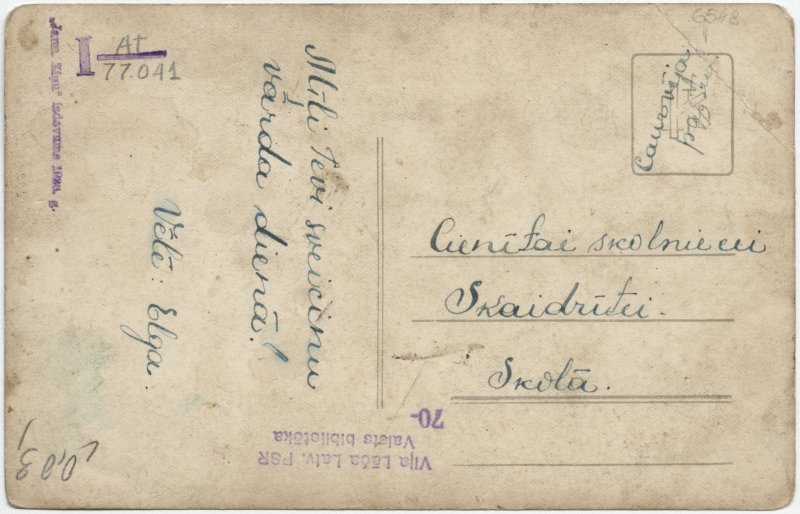 6548
I At
77.041
Mīļi Tevi sveicinu
vārda dienā!
Vēlē: Elga.
Caur
pasta
Cienītai skolniecei
Skaidrītei.
Skolā.
70-
Viļa Lāča Latv. PSR
Valsts bibliotēka
0,03
izdevums